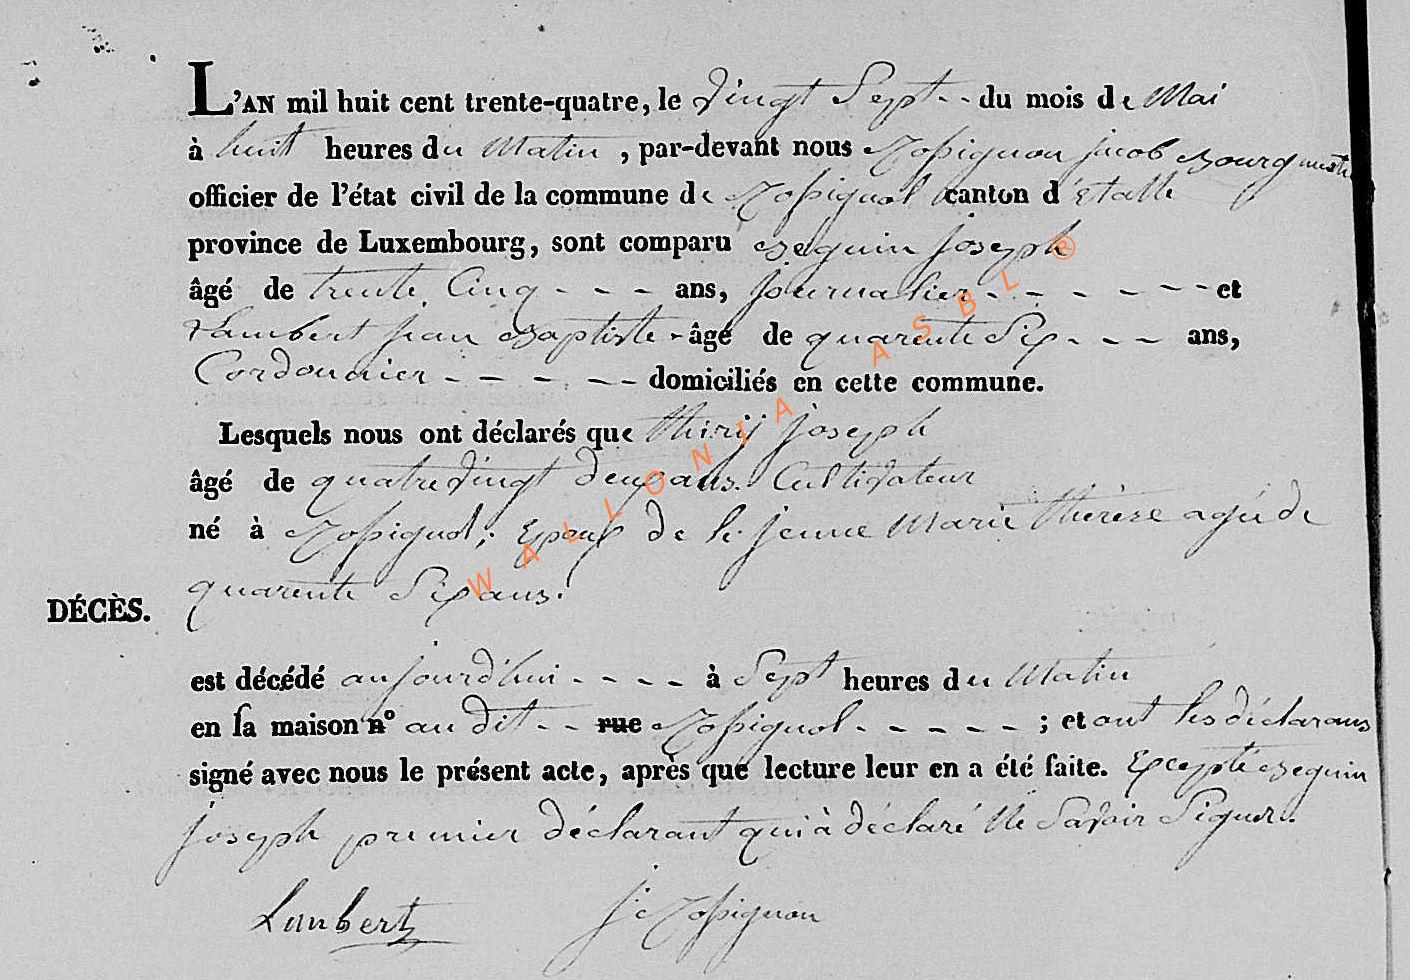 L'AN mil huit cent trente-quatre, le vingt Sept - - du mois de Mai
à huit heures du Matin, par-devant nous Rossignon jacob Bourgmestre
officier de l'état civil de la commune de Rossignol canton d'Etalle
province de Luxembourg, sont comparu Beguin joseph
âgé de trente Cinq - - - ans, journalier - - - - - - - et
Lambert jean Baptiste - âgé de quarente Six - - - ans,
Cordonnier - - - - - - domiciliés en cette commune.
Lesquels nous ont déclarés que thirij joseph
âgé de quatrevingt deux ans. Cultivateur
né à Rossignol; Epoux de le jeune Marie thérèse agée de
quarente Six ans.
DÉCÈS.
est décédé aujourd'hui - - - - à Sept heures du Matin
en sa maison n° au dit - - rue Rossignol - - - - - ; et ont les déclarans
signé avec nous le présent acte, après que lecture leur en a été faite. Excepté Beguin
joseph premier déclarant qui à déclaré Ne Savoir Signer.
Lambert j: Rossignon
WALLONIA ASBL ®